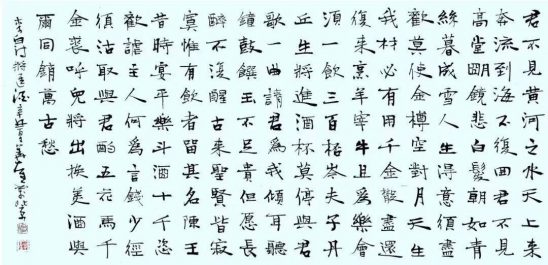 君不見黃河之水天上來
奔流到海不復回君不見
高堂明鏡悲白髮朝如青
絲暮成雪人生得意須盡
歡莫使金樽空對月天生
我材必有用千金散盡還
復來烹羊宰牛且為樂會
須一飲三百杯岑夫子丹
丘生將進酒杯莫停與君
歌一曲請君為我傾耳聽
鐘鼓饌玉不足貴但願長
醉不復醒古來聖賢皆寂
寞惟有飲者留其名陳王
昔時宴平樂斗酒十千恣
歡謔主人何為言錢少徑
須沽取與君酌五花馬千
金裘呼兒將出換美酒與
爾同銷萬古愁
李白詩將進酒